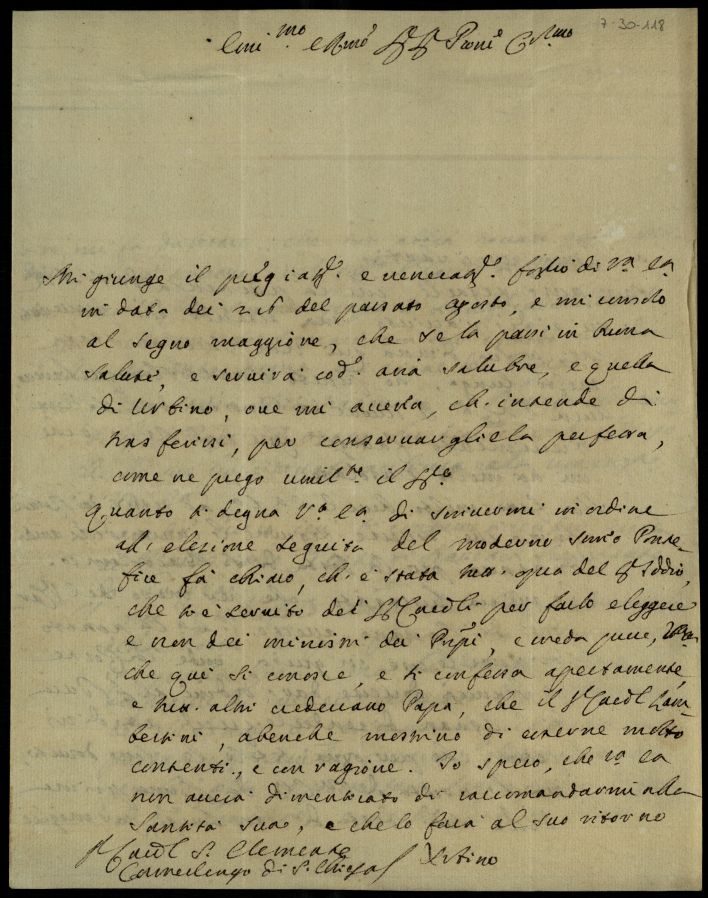 7-30-118
Emi.mo e Rmo Sg Sg Proñe Col.mo
Mi giunge il pregiatg. e veneratg. foglio di Va. Ea.
in data dei 26 del passato Agosto, e mi consolo
al segno maggiore, che se la passi in buona
salute, e servirà cod. aria salubre, e quella
di Urbino, ove mi avvisa, ch. intende di
trasferirsi, per conservargliela perfetta,
come ne prego umilte. il Sge
Quanto si degna Va. Ea. di scrivermi in ordine
all' elezione seguita del moderno smo Ponte-
fice fà chiaro, ch. è stata tutt. opra del Sg Iddio,
che si è servito dei Sg Cardli per farlo eleggere
e non dei ministri dei Prpi, e creda pure,
che quì si conosce, e si confessa apertamente,
e tutt. altri credevano Papa, che il Sg Cardl Lam-
bertini, abenche mostrino di esserne molto
contenti, e con ragione. Io spero, che Va. Ea
non avrà dimenticato di raccomandarmi alla
Santità Sua, e che lo farà al suo ritorno
Sg Cardl S. Clemente
Camerlengo di S. Chiesa Urbino